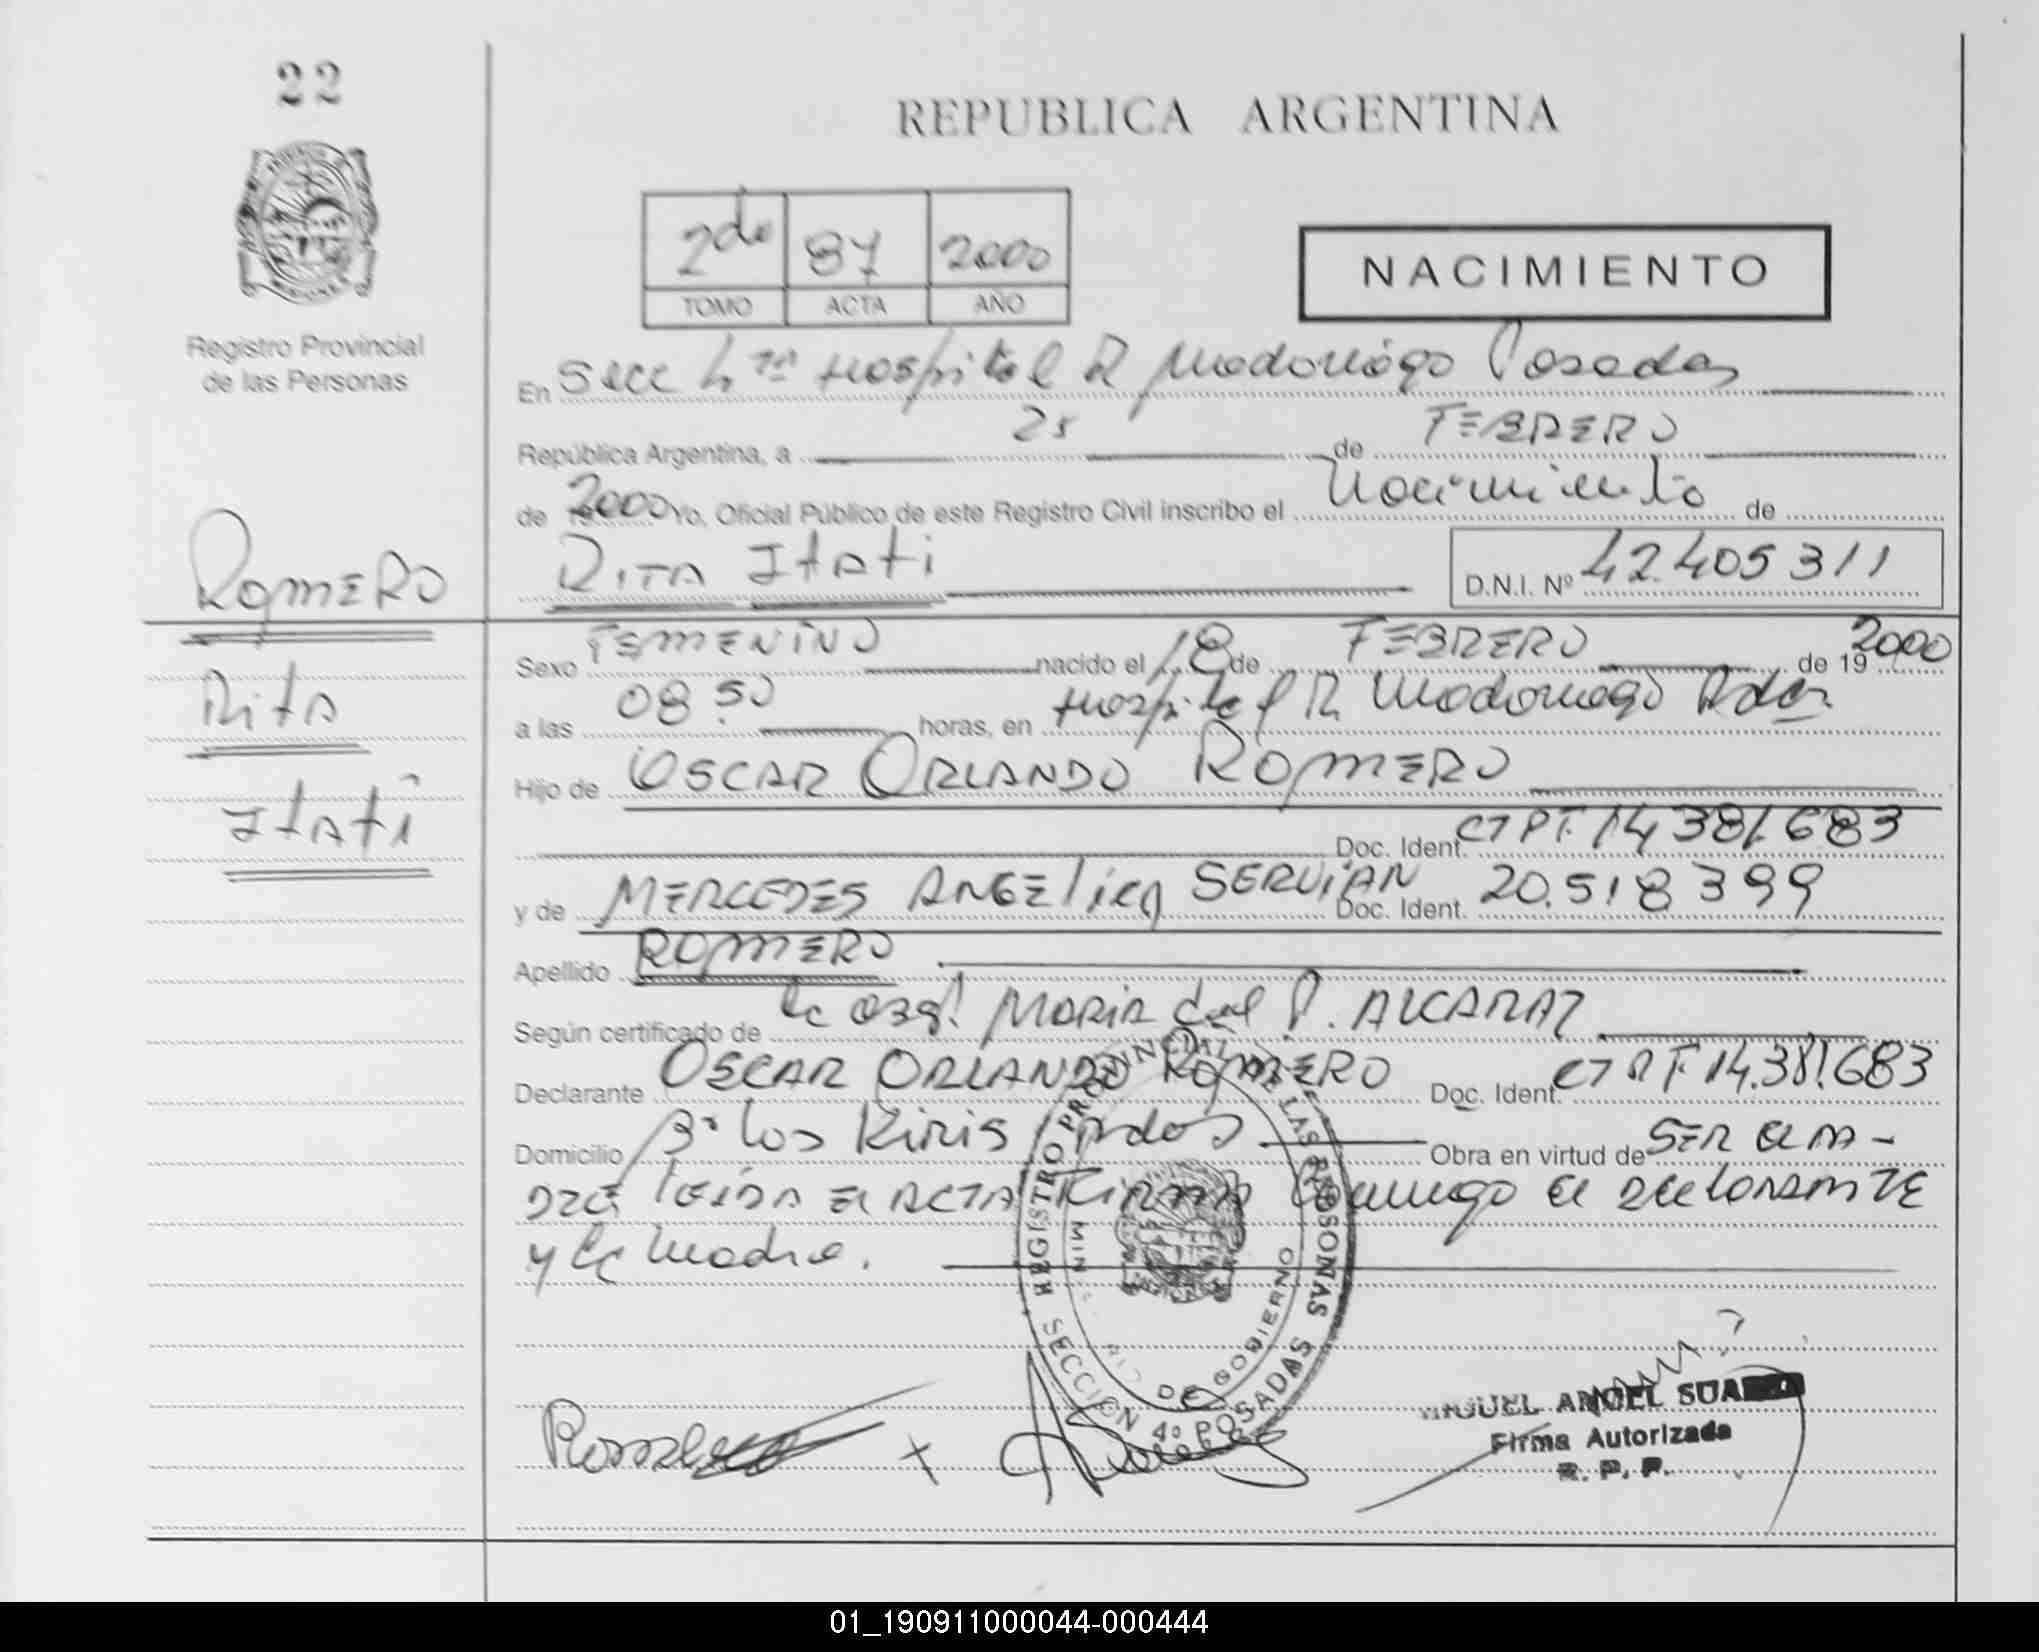 22
REPUBLICA ARGENTINA
2do 87 2000
TOMO ACTA AÑO
NACIMIENTO
Registro Provincial
de las Personas
En Secc 4ta Hospital R Madariaga Posadas
República Argentina, a 25 de FEBRERO
de 2000 Yo, Oficial Público de este Registro Civil inscribo el Nacimiento de
RITA Itati D.N.I. Nº 42.405311
ROMERO
Rita
Itati
Sexo FEMENINO nacido el 18 de FEBRERO de 19 2000
a las 08:50 horas, en Hospital R Madariaga Pdas
Hijo de OSCAR ORLANDO ROMERO
Doc. Ident. 14.381.683
y de MERCEDES ANGElica SERVIAN Doc. Ident. 20.518399
Apellido ROMERO
Según certificado de la MARIA del P. ALCARAZ
Declarante OSCAR ORLANDO ROMERO Doc. Ident. 14.381.683
Domicilio Bº los Kiris Pdas Obra en virtud de SER el PA-
DRE leida el ACTA FIRMAN conmigo el declarante
y la madre.
REGISTRO PROVINCIAL DE LAS PERSONAS
SECCION 4º POSADAS
DE GOBIERNO
MIGUEL ANGEL SUAREZ
Firma Autorizada
R. P. P.
01_190911000044-000444